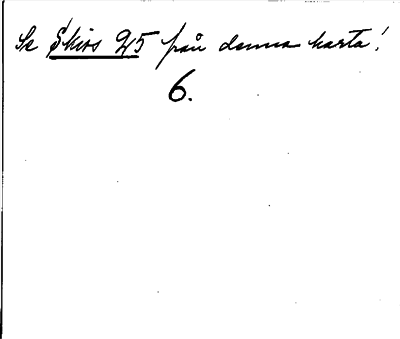 Se Skiss 25 från denna karta!
6.